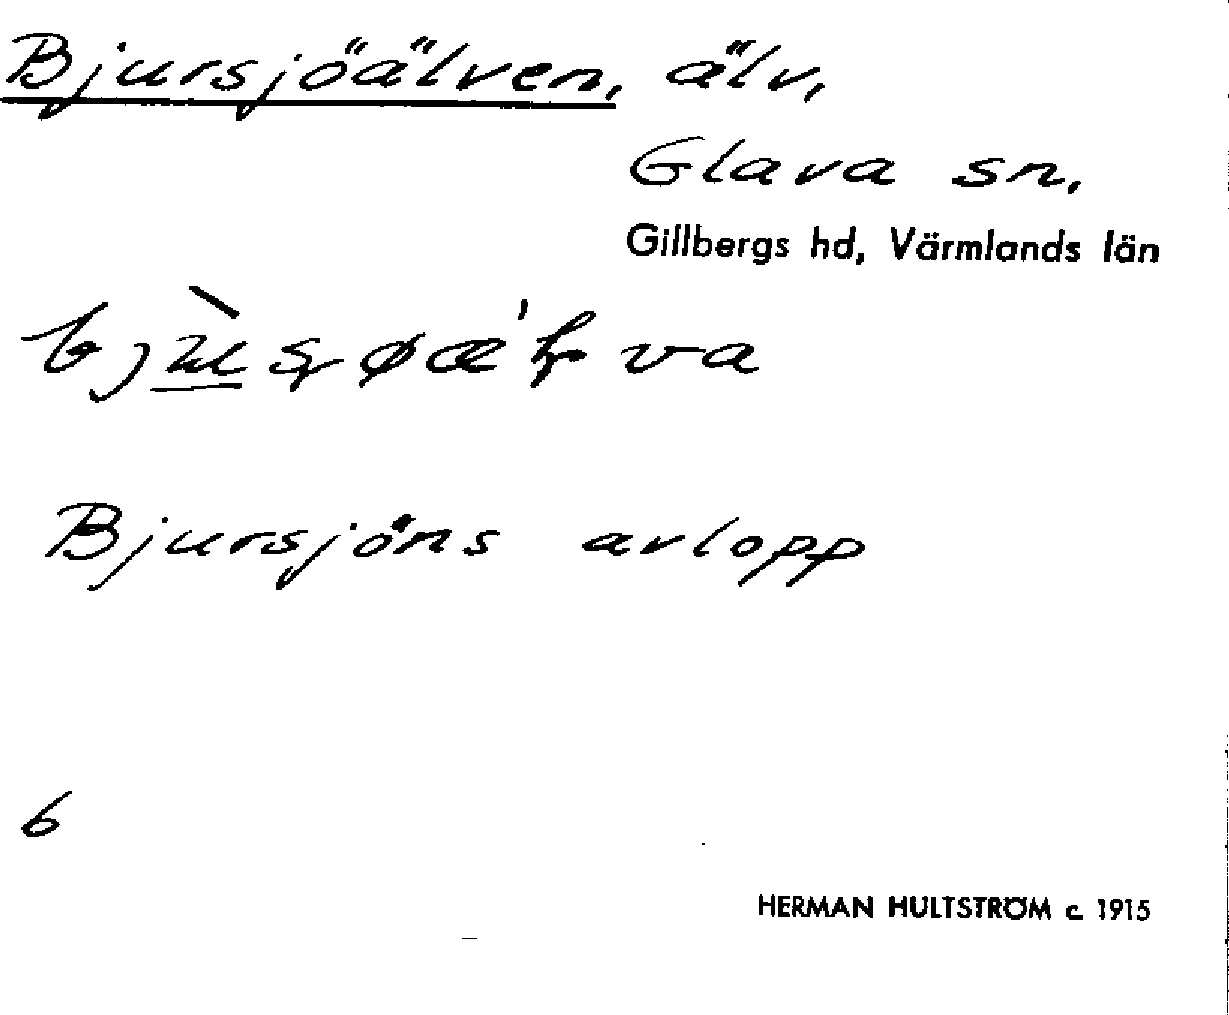 Bjursjöälven, älv,
Glava sn.
Gillbergs hd, Värmlands län
Bjursjöns avlopp
6
HERMAN HULTSTRÖM c. 1915